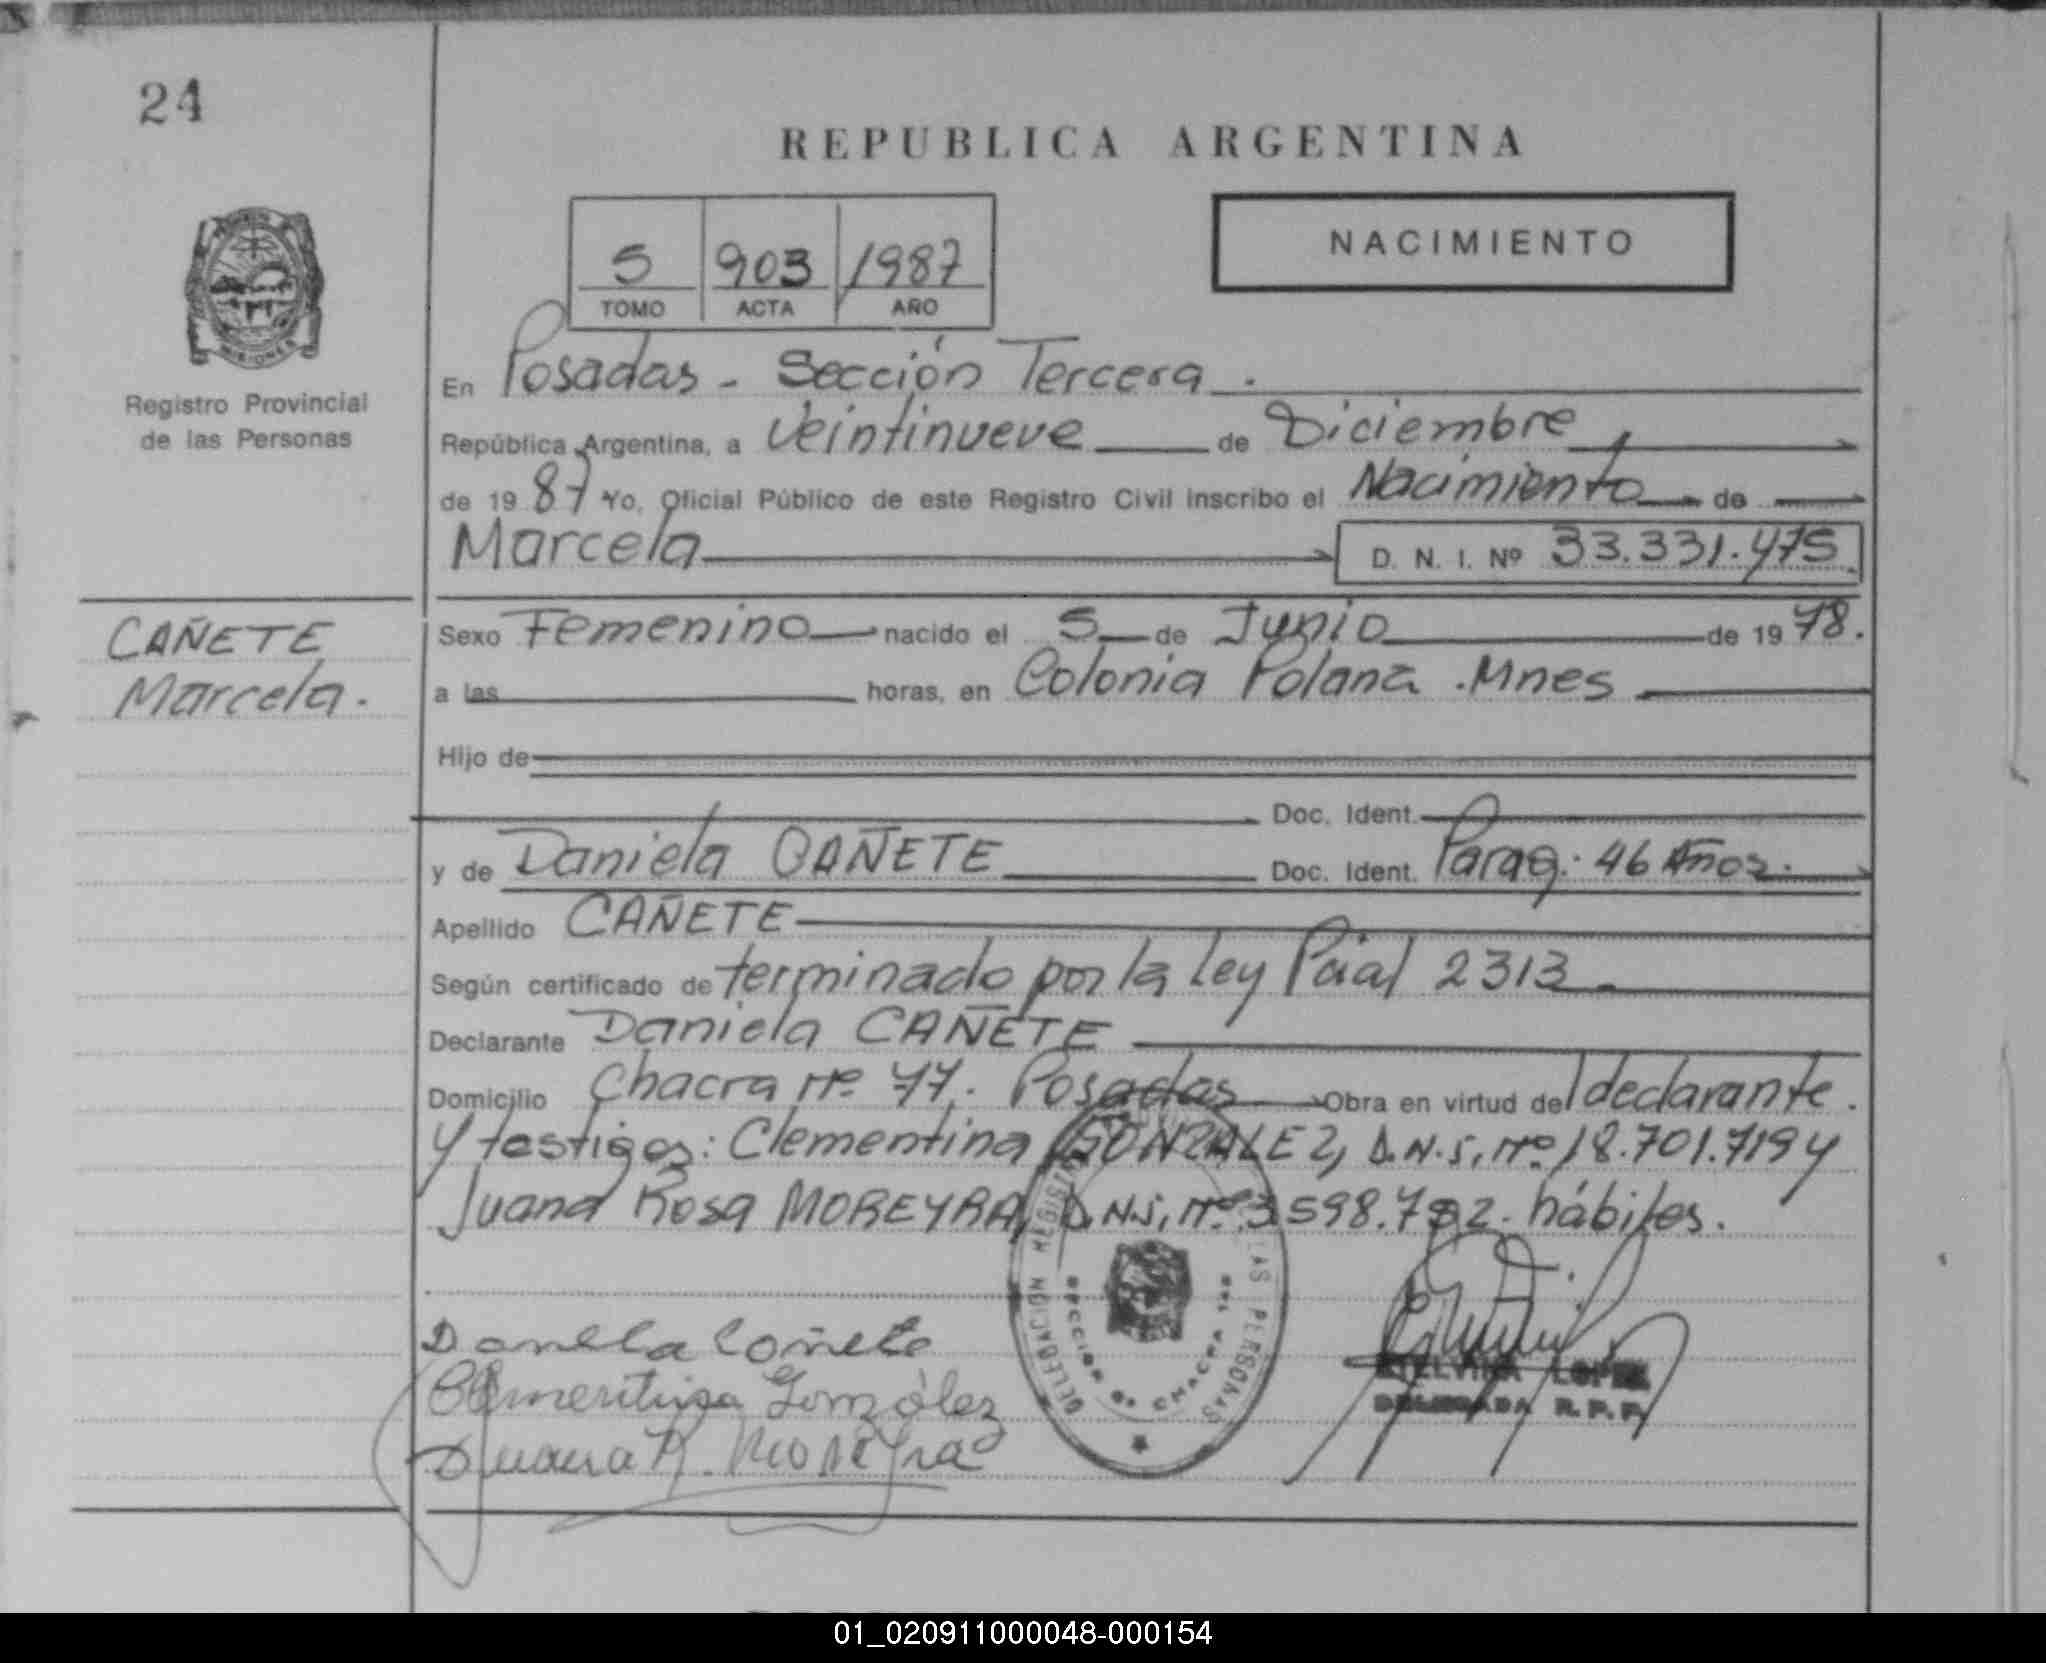 24
REPUBLICA ARGENTINA
5 903 1987
TOMO ACTA AÑO
NACIMIENTO
MISIONES
Registro Provincial
de las Personas
En Posadas - Sección Tercera.
República Argentina, a Veintinueve de Diciembre
de 1987 Yo, Oficial Público de este Registro Civil inscribo el Nacimiento de
Marcela D. N. I. Nº 33.331.475
CAÑETE
Marcela.
Sexo Femenino nacido el 5 de Junio de 1978.
a las horas, en Colonia Polana. Mnes
Hijo de
Doc. Ident.
y de Daniela CAÑETE Doc. Ident. Parag. 46 Años.
Apellido CAÑETE
Según certificado de terminado por la Ley Pcial 2313
Declarante Daniela CAÑETE
Domicilio Chacra Nº 77. Posadas Obra en virtud del declarante.
y testigos: Clementina GONZALEZ, D.N.I. Nº 18.701.719 y
Juana Rosa MOREYRA, D.N.I. Nº 3.598.782. hábiles.
DELEGACION REGISTRO LAS PERSONAS
SECCION 3a CHACRA
Daniela Cañete
Clementina González
Juana R. Moreyra
ETELVINA LOPEZ
DELEGADA R.P.P.
01_020911000048-000154